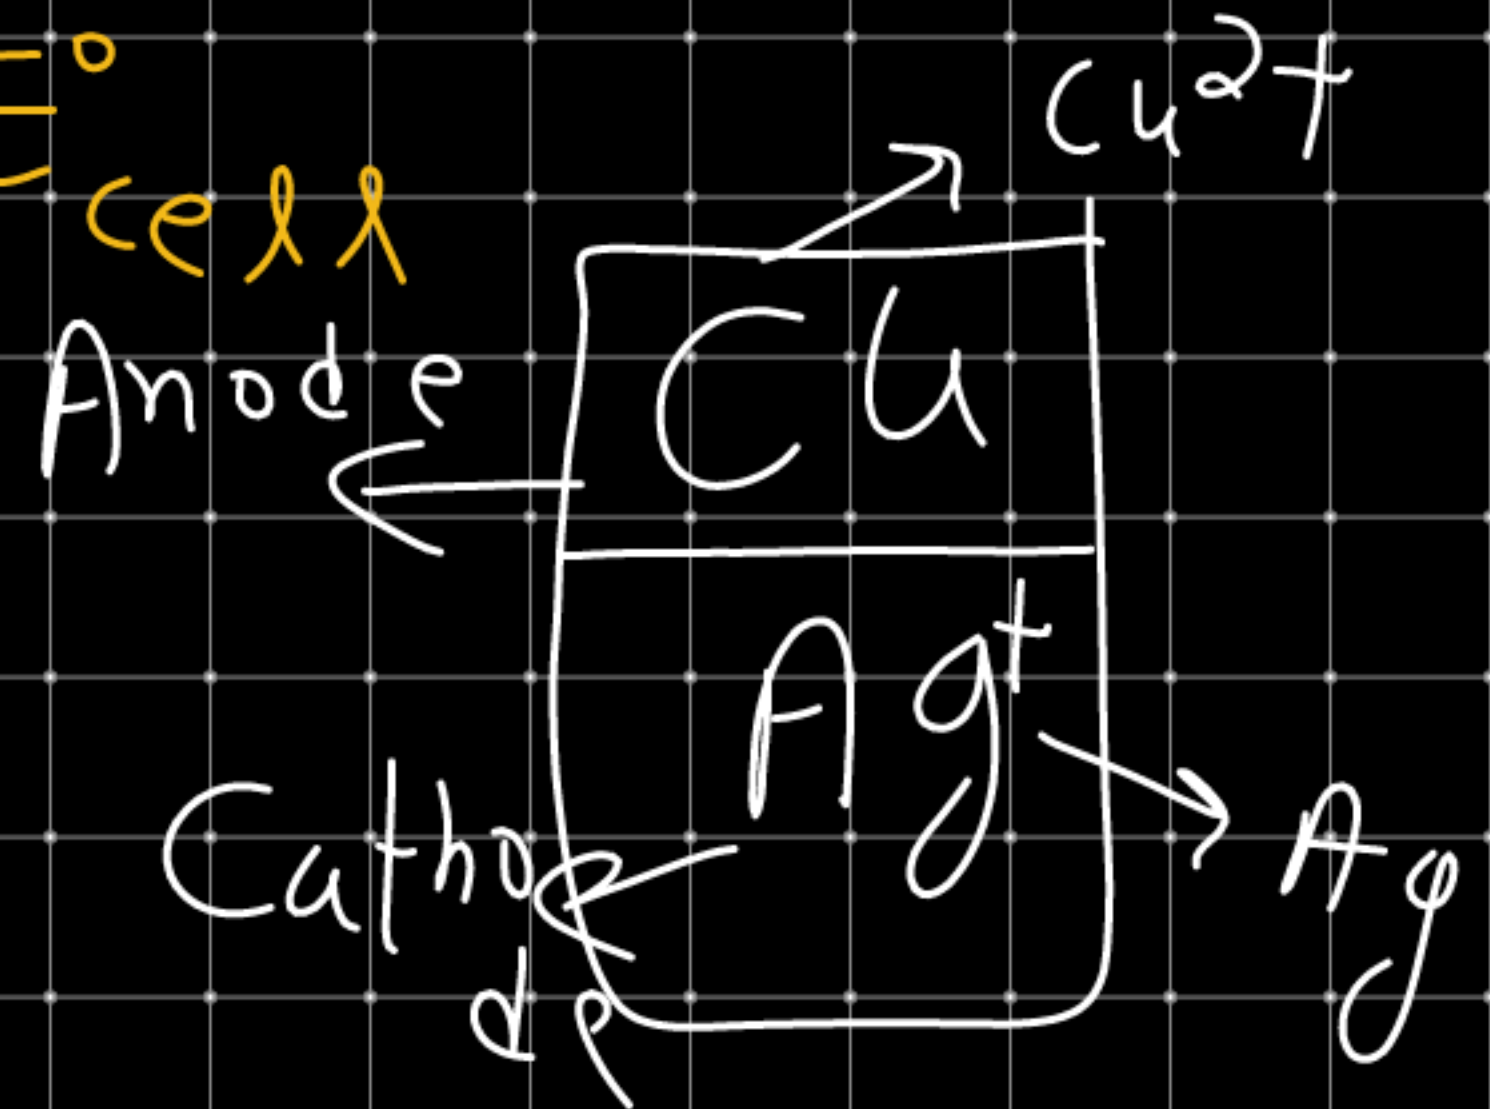 E°
cell
Cu²⁺
Anode
Cu
Ag⁺
Catho
de
Ag